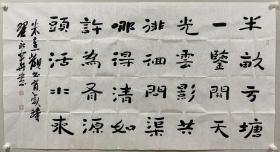 半畝方塘
一鑒開天
光雲影共
徘徊問渠
哪得清如
許為有源
頭活水來
朱熹觀書有感詩